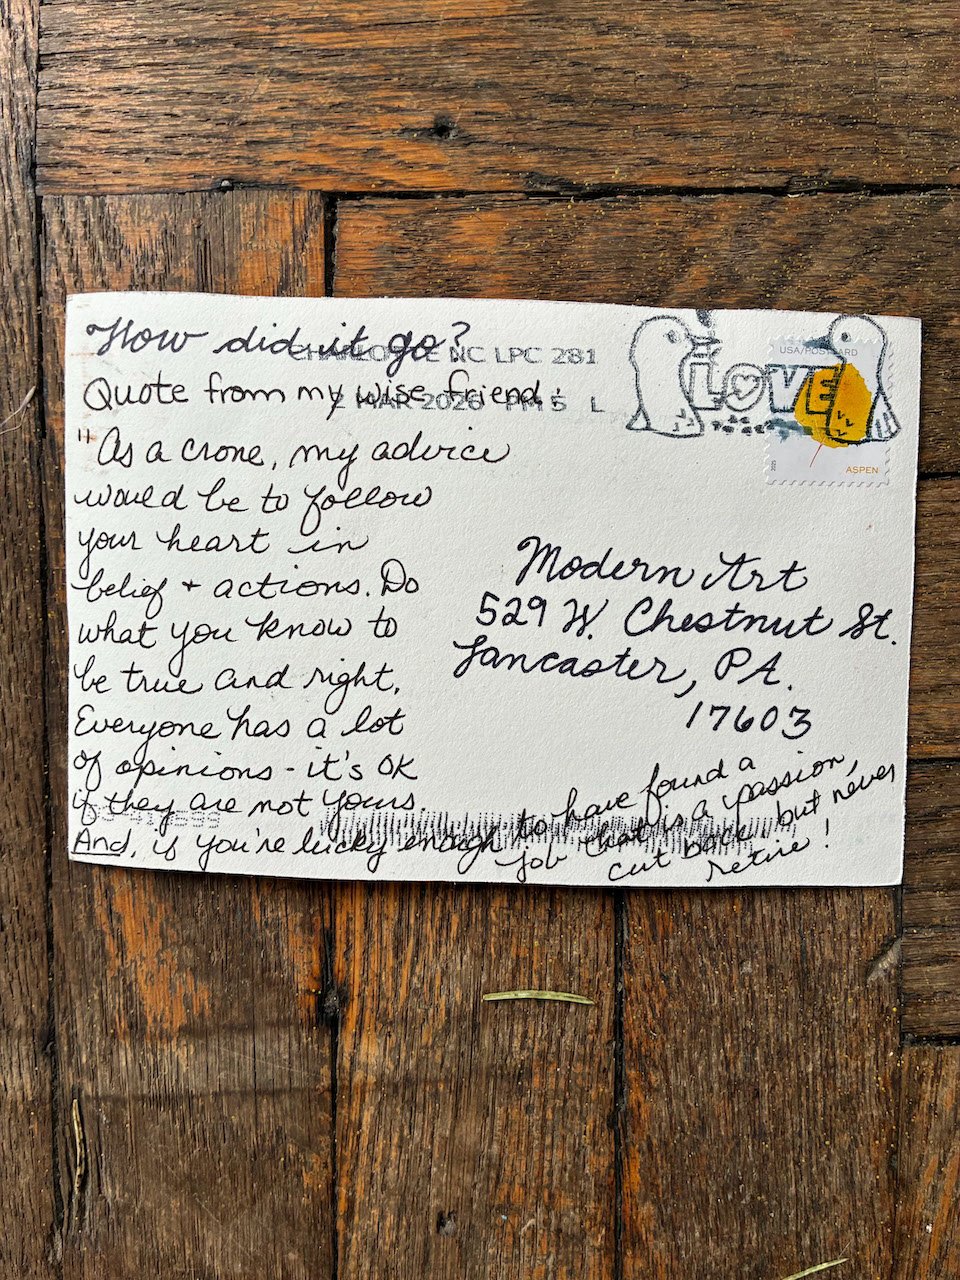 How did it go?
CHARLOTTE NC LPC 281
Quote from my wise friend:
2 MAR 2026 PM 5 L
LOVE
USA/POSTCARD
2025
ASPEN
"As a crone, my advice
would be to follow
your heart in
belief + actions. Do
what you know to
be true and right.
Everyone has a lot
of opinions - it's OK
if they are not yours.
And, if you're lucky enough to have found a
job that is a passion,
cut back but never
retire!
Modern Art
529 W. Chestnut St.
Lancaster, PA.
17603